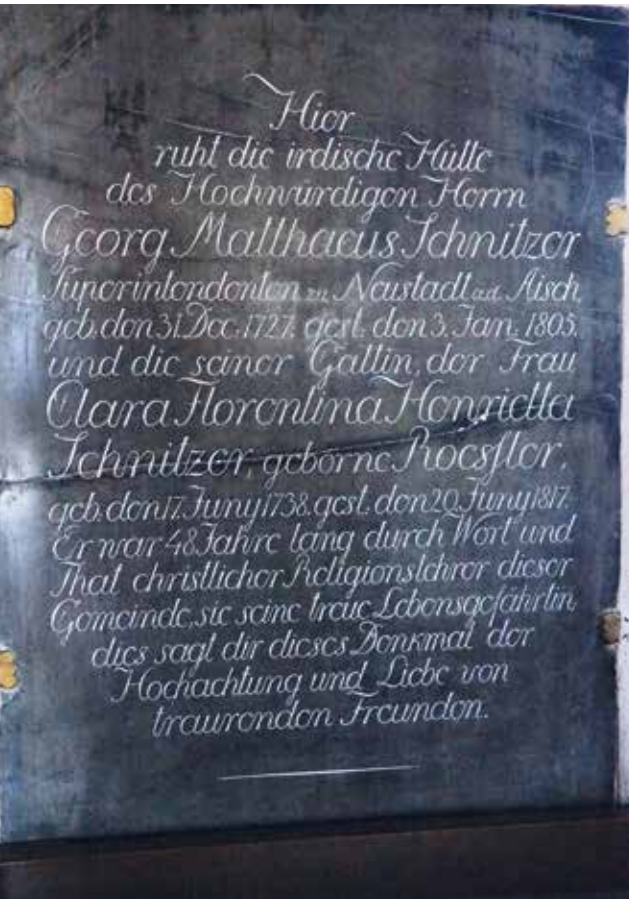 Hier
ruht die irdische Hülle
des Hochwürdigen Herrn
Georg Matthaeus Schnitzer
Superintendenten zu Neustadt a.d. Aisch
geb. den 31 Dec. 1727. gest. den 3. Jan. 1805.
und die seiner Gattin, der Frau
Clara Florentina Henrietta
Schnitzer, geborne Roessler,
geb. den 17. Juny 1738. gest. den 20. Juny 1817.
Er war 48 Jahre lang durch Wort und
That christlicher Religionslehrer dieser
Gemeinde, sie seine treue Lebensgefährtin,
dies sagt dir dieses Denkmal der
Hochachtung und Liebe von
traurenden Freunden.